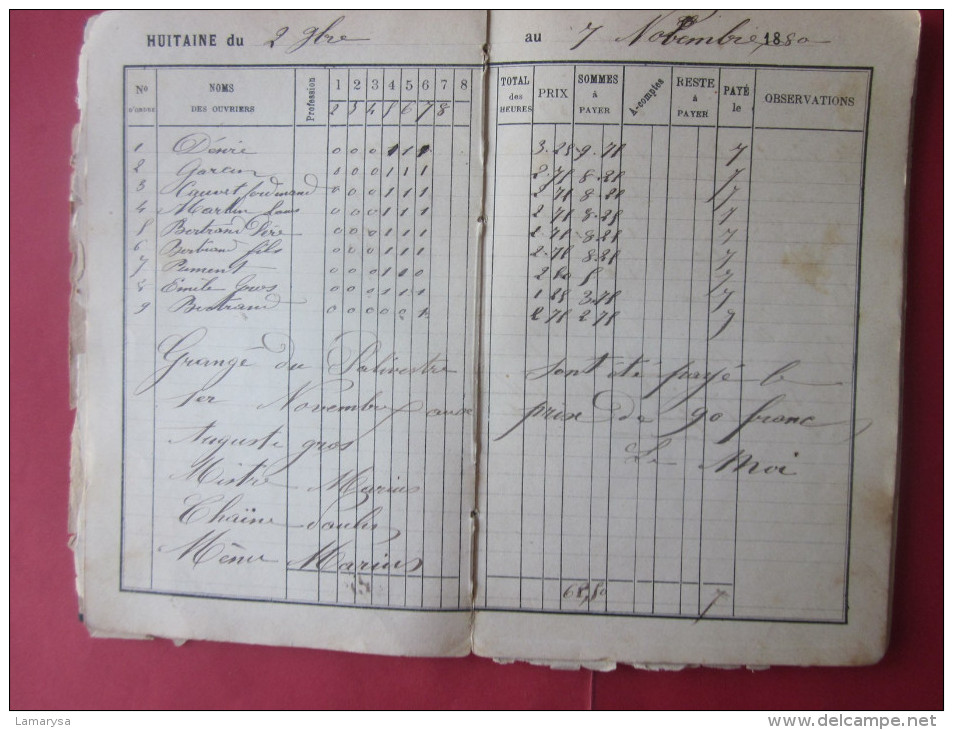 HUITAINE du 2 9bre au 7 Novembre 1880
No D'ORDRE NOMS DES OUVRIERS Profession 1 2 3 4 5 6 7 8 TOTAL des HEURES PRIX SOMMES à PAYER A-comptes RESTE à PAYER PAYÉ le OBSERVATIONS
2 3 4 5 6 7 8
1 Désiré 0 0 0 1 1 1 3.25 9.75 7
2 Garcin 0 0 0 1 1 1 2.75 8.25 7
3 Cauvet 0 0 0 1 1 1 2.75 8.25 7
4 Martin 0 0 0 1 1 1 2.75 8.25 7
5 Bertrand Père 0 0 0 1 1 1 2.75 8.25 7
6 Bertrand fils 0 0 0 1 1 1 2.75 8.25 7
7 0 0 0 1 1 0 2.50 5 7
8 Emile Gros 0 0 0 1 1 1 1.25 3.75 7
9 Bertrand 0 0 0 0 0 1 2.75 2.75 9
Grangé du sont été payé le
1er Novembre prix de 90 franc
Auguste gros Le Moi
Mistre Marius
Chaîne
Marius
68,50 7
Lamarysa
www.delcampe.net